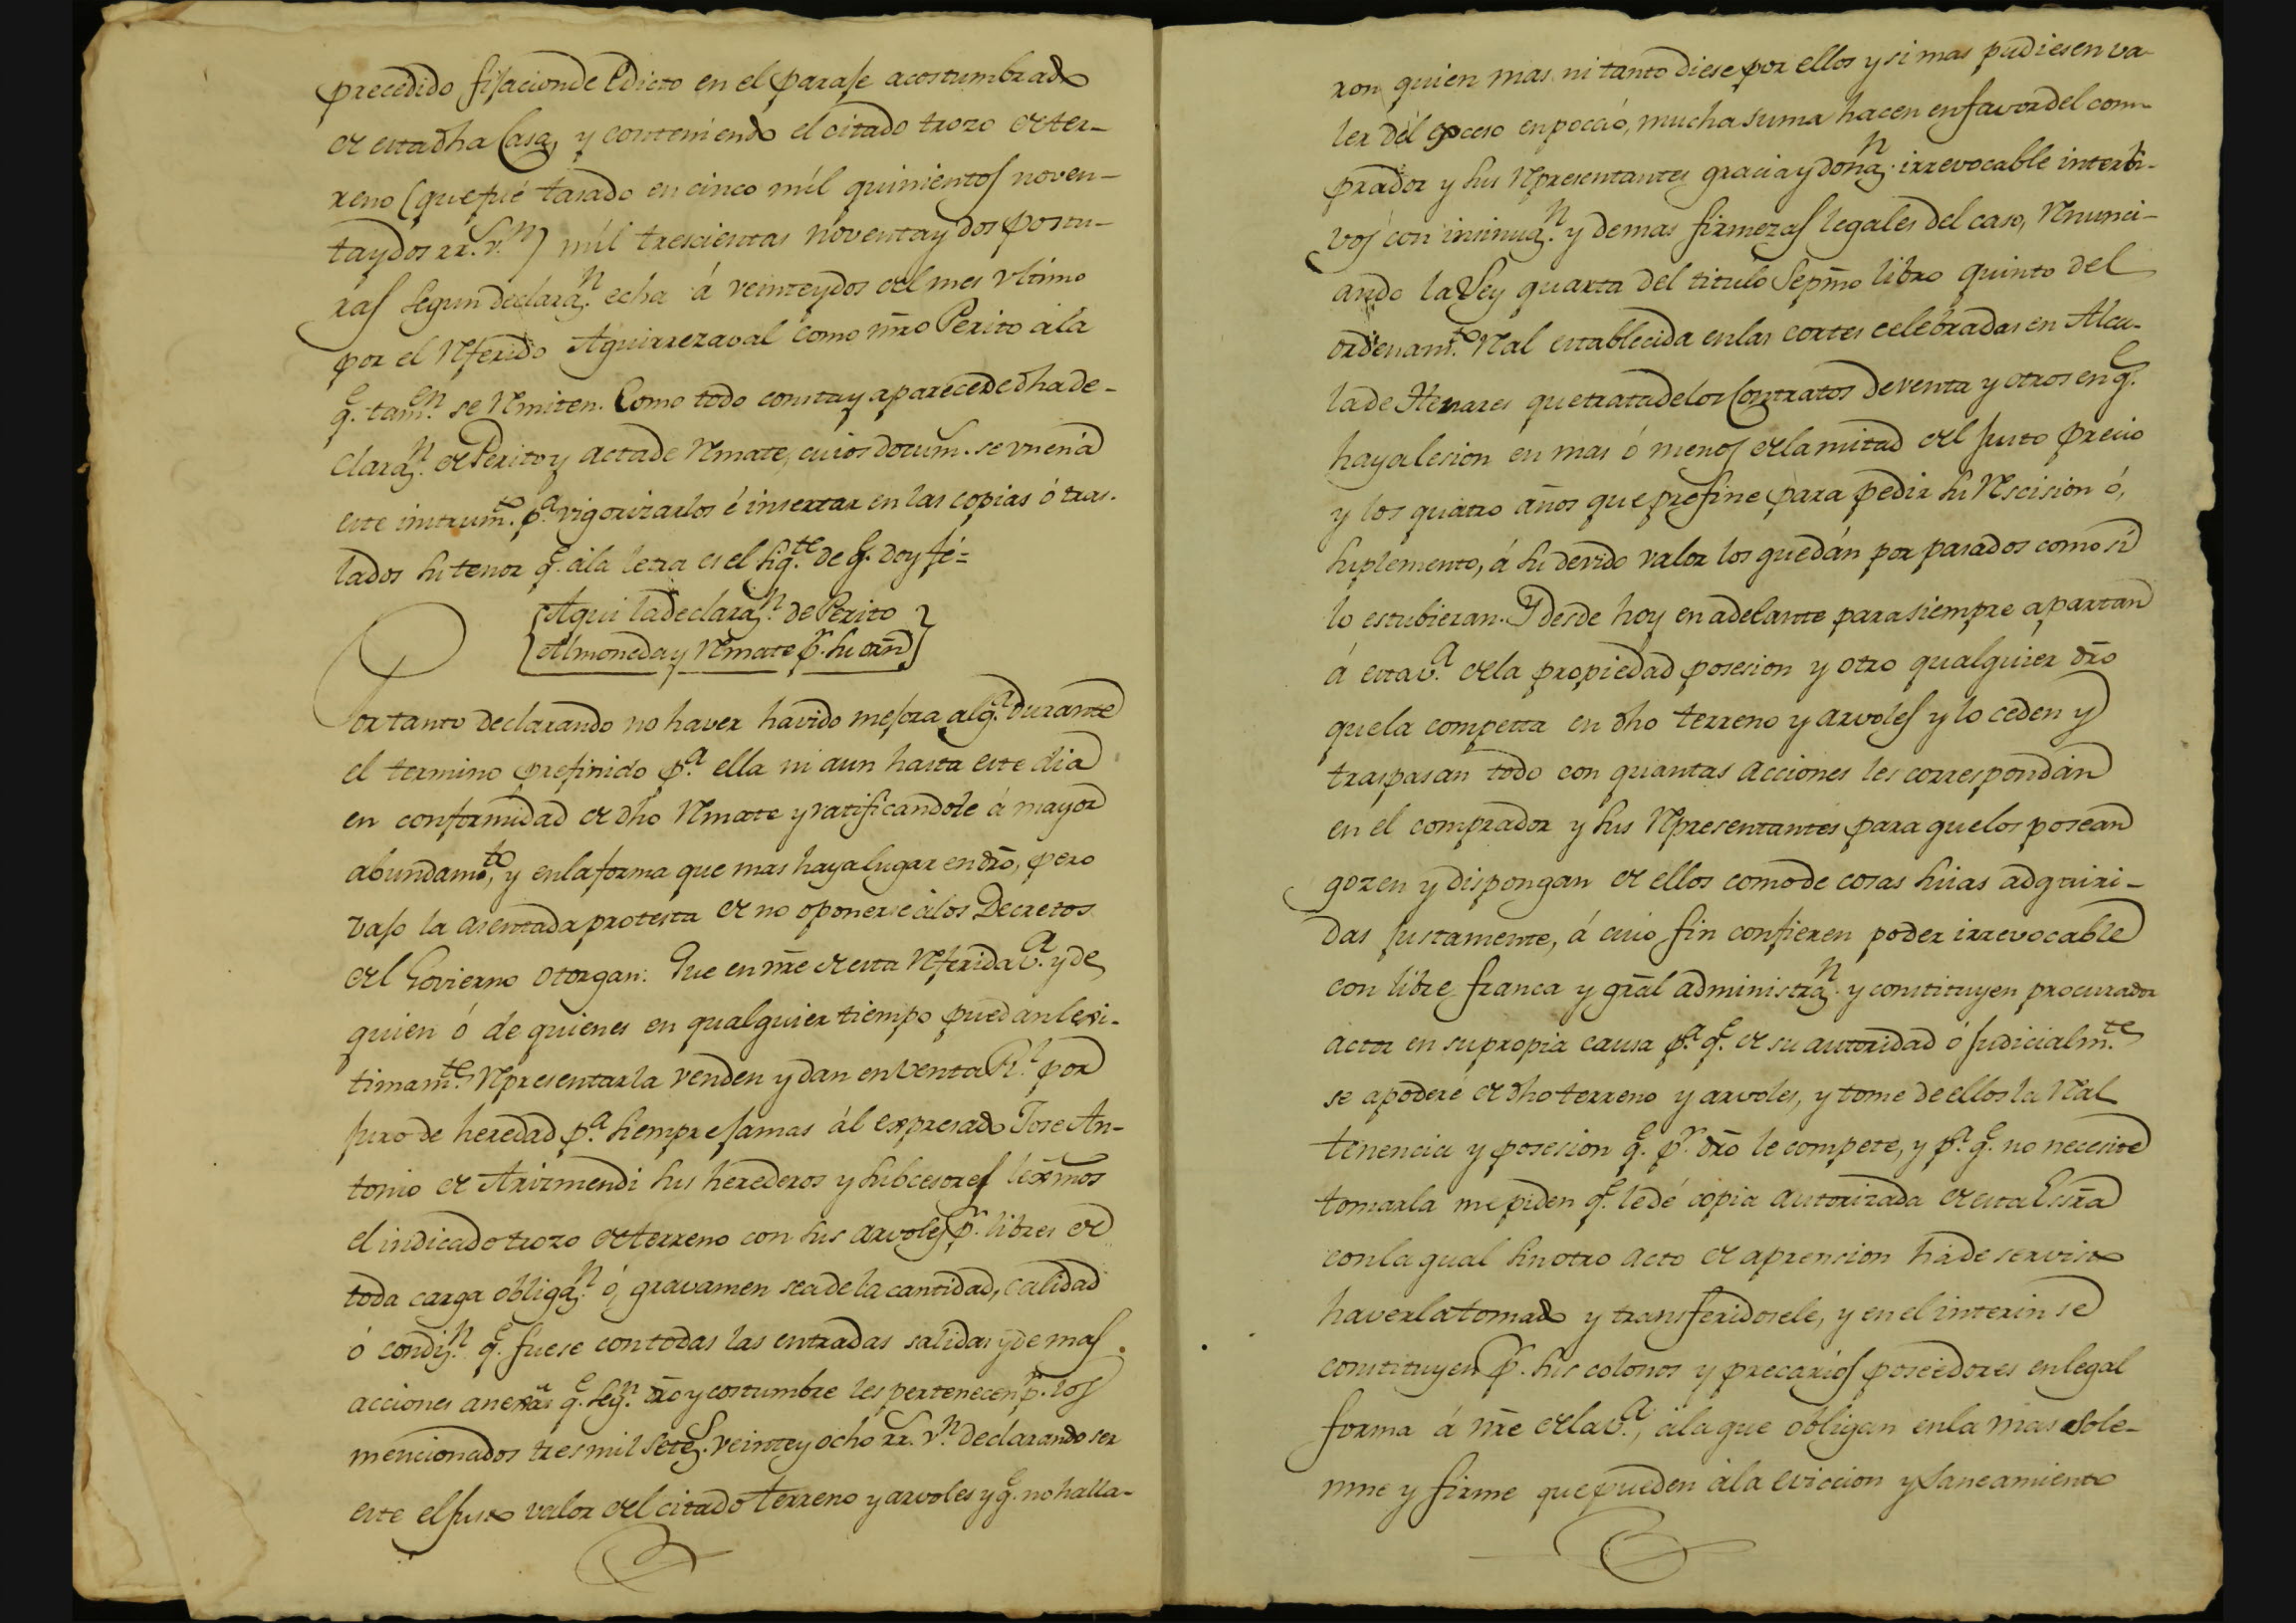 precedido fijacion de Edicto en el paraje acostumbrado
de esta dha Casa, y conteniendo el citado trozo de ter-
reno (que fué tasado en cinco mil quinientos noven-
ta y dos rr.s v.n) mil trescientas noventa y dos postu-
ras segun declara.n echa á veinte y dos del mes vltimo
por el referido Aguirrezaval como nro Perito á la
q.e tam.en se remiten. Como todo consta y aparece de dha de-
clara.n de Perito y acta de remate, cuios docum.s se vnen á
este instrum.to p.a vigorizarlos é insertar en las copias ó tras-
lados su tenor q.e á la letra es el sig.te de q.e doy fé=
Aqui la declara.n de Perito
Almoneda y remate p.r su orn
Por tanto declarando no haver havido mejora alg.a durante
el termino prefinido p.a ella ni aun hasta este dia
en conformidad de dho remate y ratificandole á mayor
abundam.to, y en la forma que mas haya lugar en dro, pero
vajo la asentada protesta de no oponerse á los Decretos
del Govierno otorgan: Que en nre de esta referida v.a y de
quien ó de quienes en qualquier tiempo puedan lexi-
timam.te representarla venden y dan en venta R.l por
juro de heredad p.a siempre jamas ál expresado Jose An-
tonio de Arizmendi sus herederos y subcesores lexmos
el indicado trozo de terreno con sus arvoles p.r libres de
toda carga obliga.n ó, gravamen sea de la cantidad, calidad
ó condi.n q.e fuese con todas las entradas salidas y demas
acciones anexas q.e seg.n dro y costumbre les pertenecen p.r los
mencionados tres mil sete.s veinte y ocho rr.s v.n declarando ser
este el justo valor del citado terreno y arvoles y q.e no halla-
ron quien mas ni tanto diese por ellos y si mas pudiesen va-
ler del exceso en poca ó, mucha suma hacen en favor del com-
prador y sus representantes gracia y dona.n irrevocable intervi-
vos con insinua.n y demas firmezas legales del caso, renunci-
ando la Ley quarta del titulo Sepmo libro quinto del
ordenam.to real establecida en las cortes celebradas en Alca-
la de Henares que trata de los Contratos de venta y otros en q.e
haya lesion en mas ó menos de la mitad del justo precio
y los quatro años que prefine para pedir su rescision ó,
suplemento, á su devido valor los quedán por pasados como si
lo estubieran. Y desde hoy en adelante para siempre apartan
á esta v.a de la propiedad posesion y otro qualquier dro
que la competa en dho terreno y arvoles y lo ceden y
traspasan todo con quantas acciones les correspondán
en el comprador y sus representantes para que los posean
gozen y dispongan de ellos como de cosas suias adquiri-
das justamente, á cuio fin confieren poder irrevocable
con libre franca y gral administra.n y constituyen procurador
actor en su propia causa p.a q.e de su autoridad ó judicialm.te
se apodere de dho terreno y arvoles, y tome de ellos la real
tenencia y posesion q.e p.r dro le compete, y p.a q.e no necesite
tomarla me piden q.e le dé copia autorizada de esta Essra
con la qual sin otro acto de aprension há de ser visto
haverla tomado y transferidosele, y en el interin se
constituyen p.r sus colonos y precarios poseedores en legal
forma á nre de la v.a, á la que obligan en la mas sole-
mne y firme que pueden á la eviccion y saneamiento